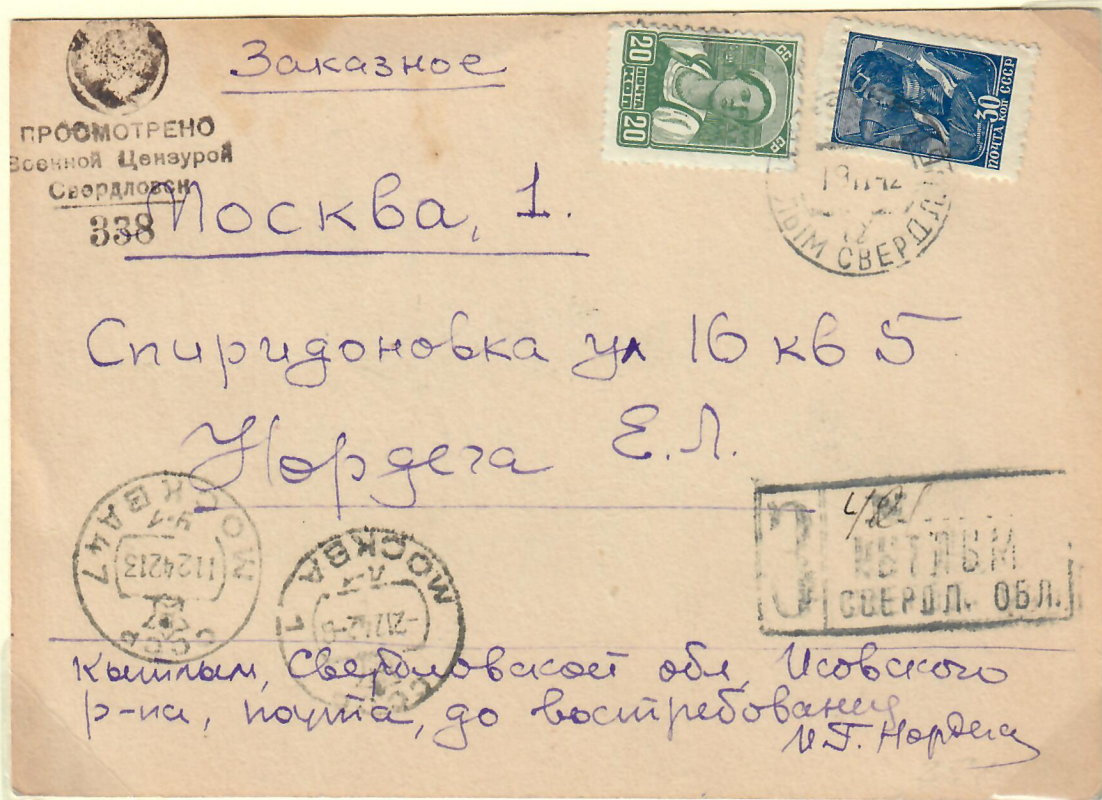 Заказное
ПРОСМОТРЕНО
Военной Цензурой
Свердловск
338
20
ПОЧТА
КОП
20
СС
СР
30
ПОЧТА КОП СССР
ЛЫМ СВЕРДЛ
Москва, 1.
Спиридоновка ул 16 кв 5
Нордега Е.Л.
МОСКВА 47
Ч-1
СССР
МОСКВА 1
З
КЫТЛЫМ
СВЕРДЛ. ОБЛ.
Кытлым, Свердловской обл, Исовского
р-на, почта, до востребования
И.Г. Нордега